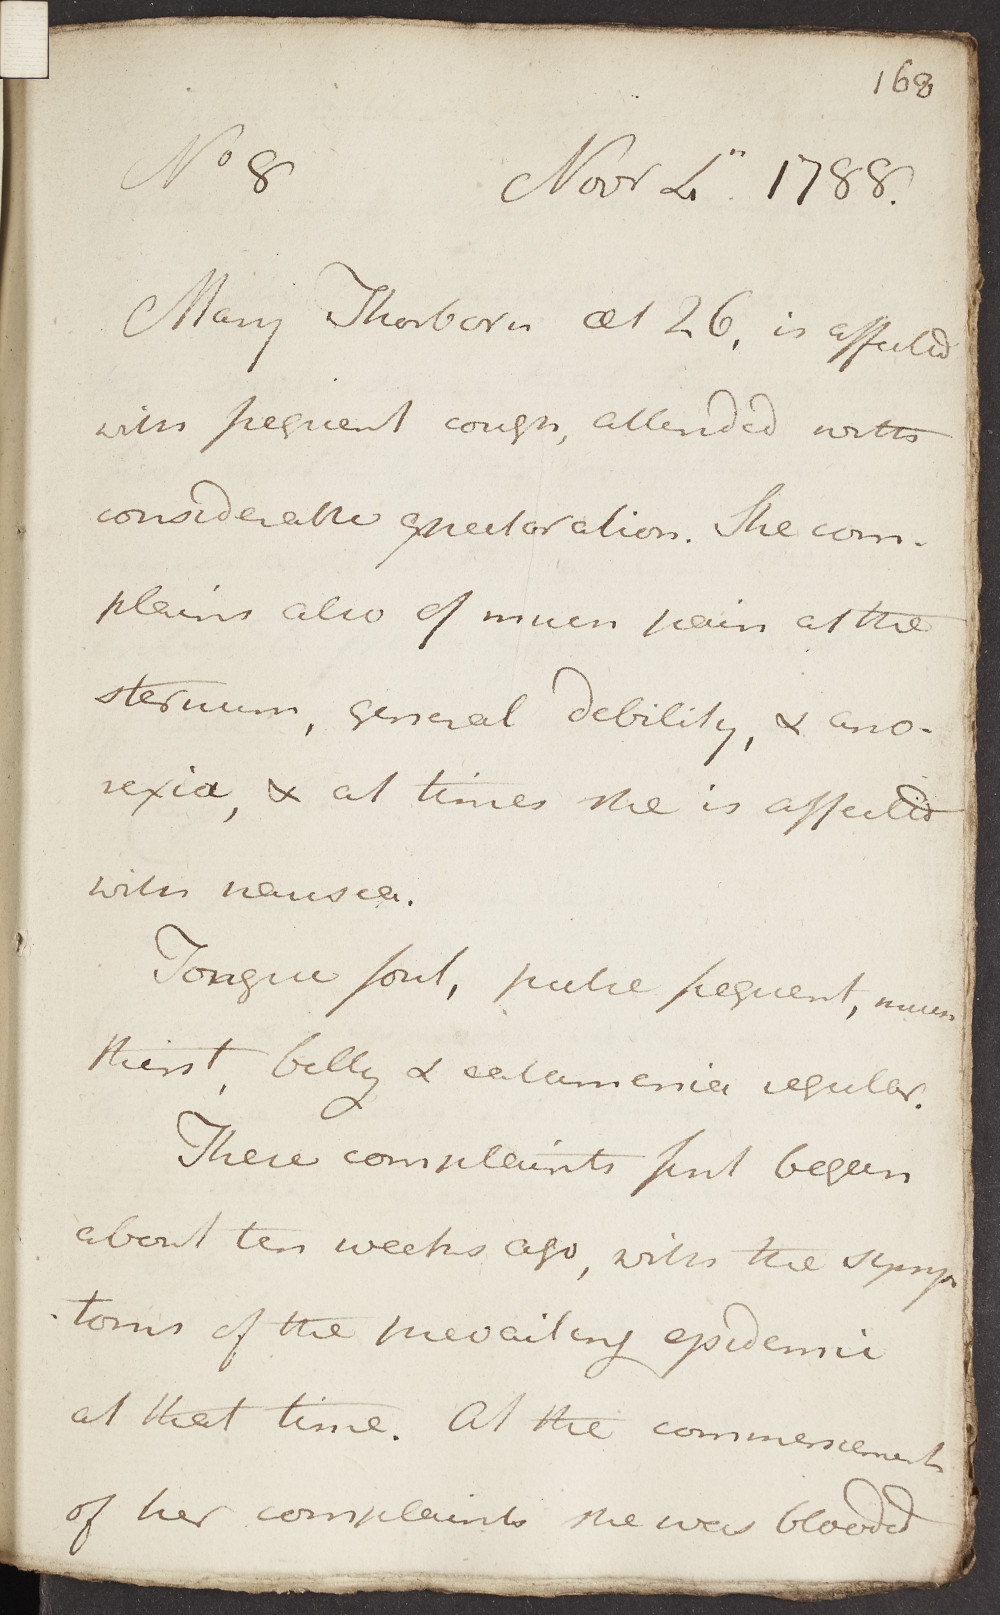 168
No 8 Novr 4" 1788.
Mary Thorborn æt 26, is affected
with frequent cough, attended with
considerable expectoration. She com-
plains also of much pain at the
sternum, general debility, & ano-
rexia, & at times she is affected
with nausea.
Tongue foul, pulse frequent, much
thirst, belly & catamenia regular.
These complaints first began
about ten weeks ago, with the symp-
-toms of the prevailing epidemic
at that time. At the commencement
of her complaints she was blooded